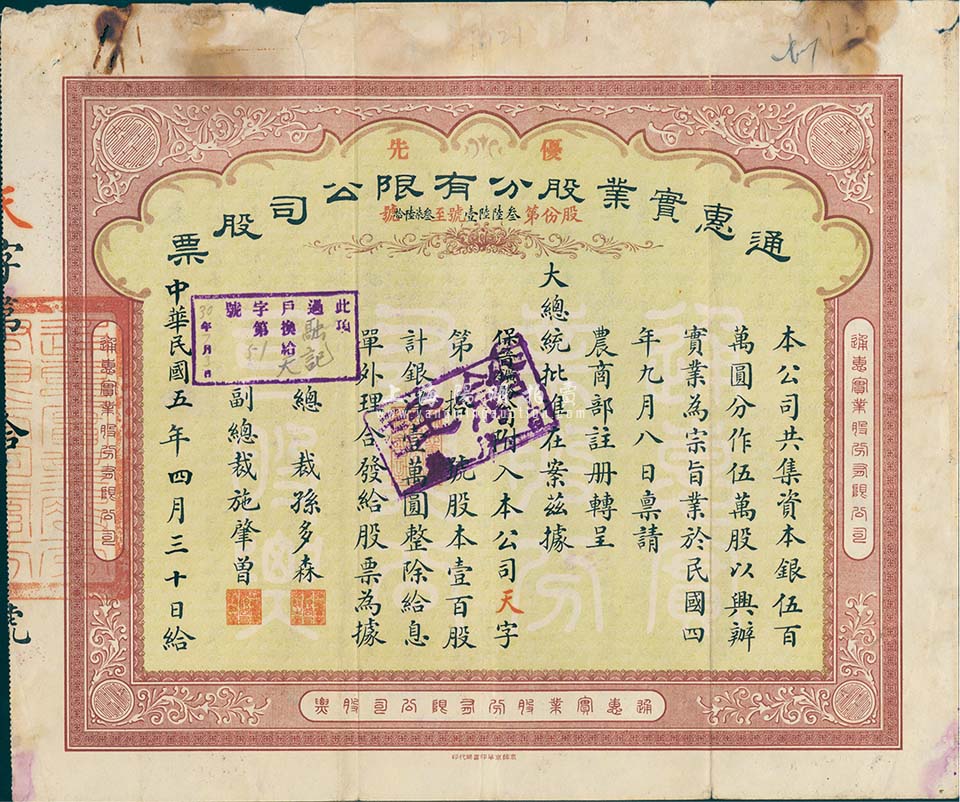 優先
通惠實業股分有限公司股票
股份第叁陸陸壹號至叁柒陸拾號
本公司共集資本銀伍百
萬圓分作伍萬股以興辦
實業為宗旨業於民國四
年九月八日稟請
農商部註册轉呈
大總統批准在案茲據
附入本公司天字
第拾號股本壹百股
計銀壹萬圓整除給息
單外理合發給股票為據
總裁孫多森
副總裁施肇曾
中華民國五年四月三十日給
此項
過融記
戶換給天
字第51
號
30年月日
註銷
天字第拾號
通惠實業股份有限公司
通惠實業股份有限公司
通惠實業股份有限公司股票